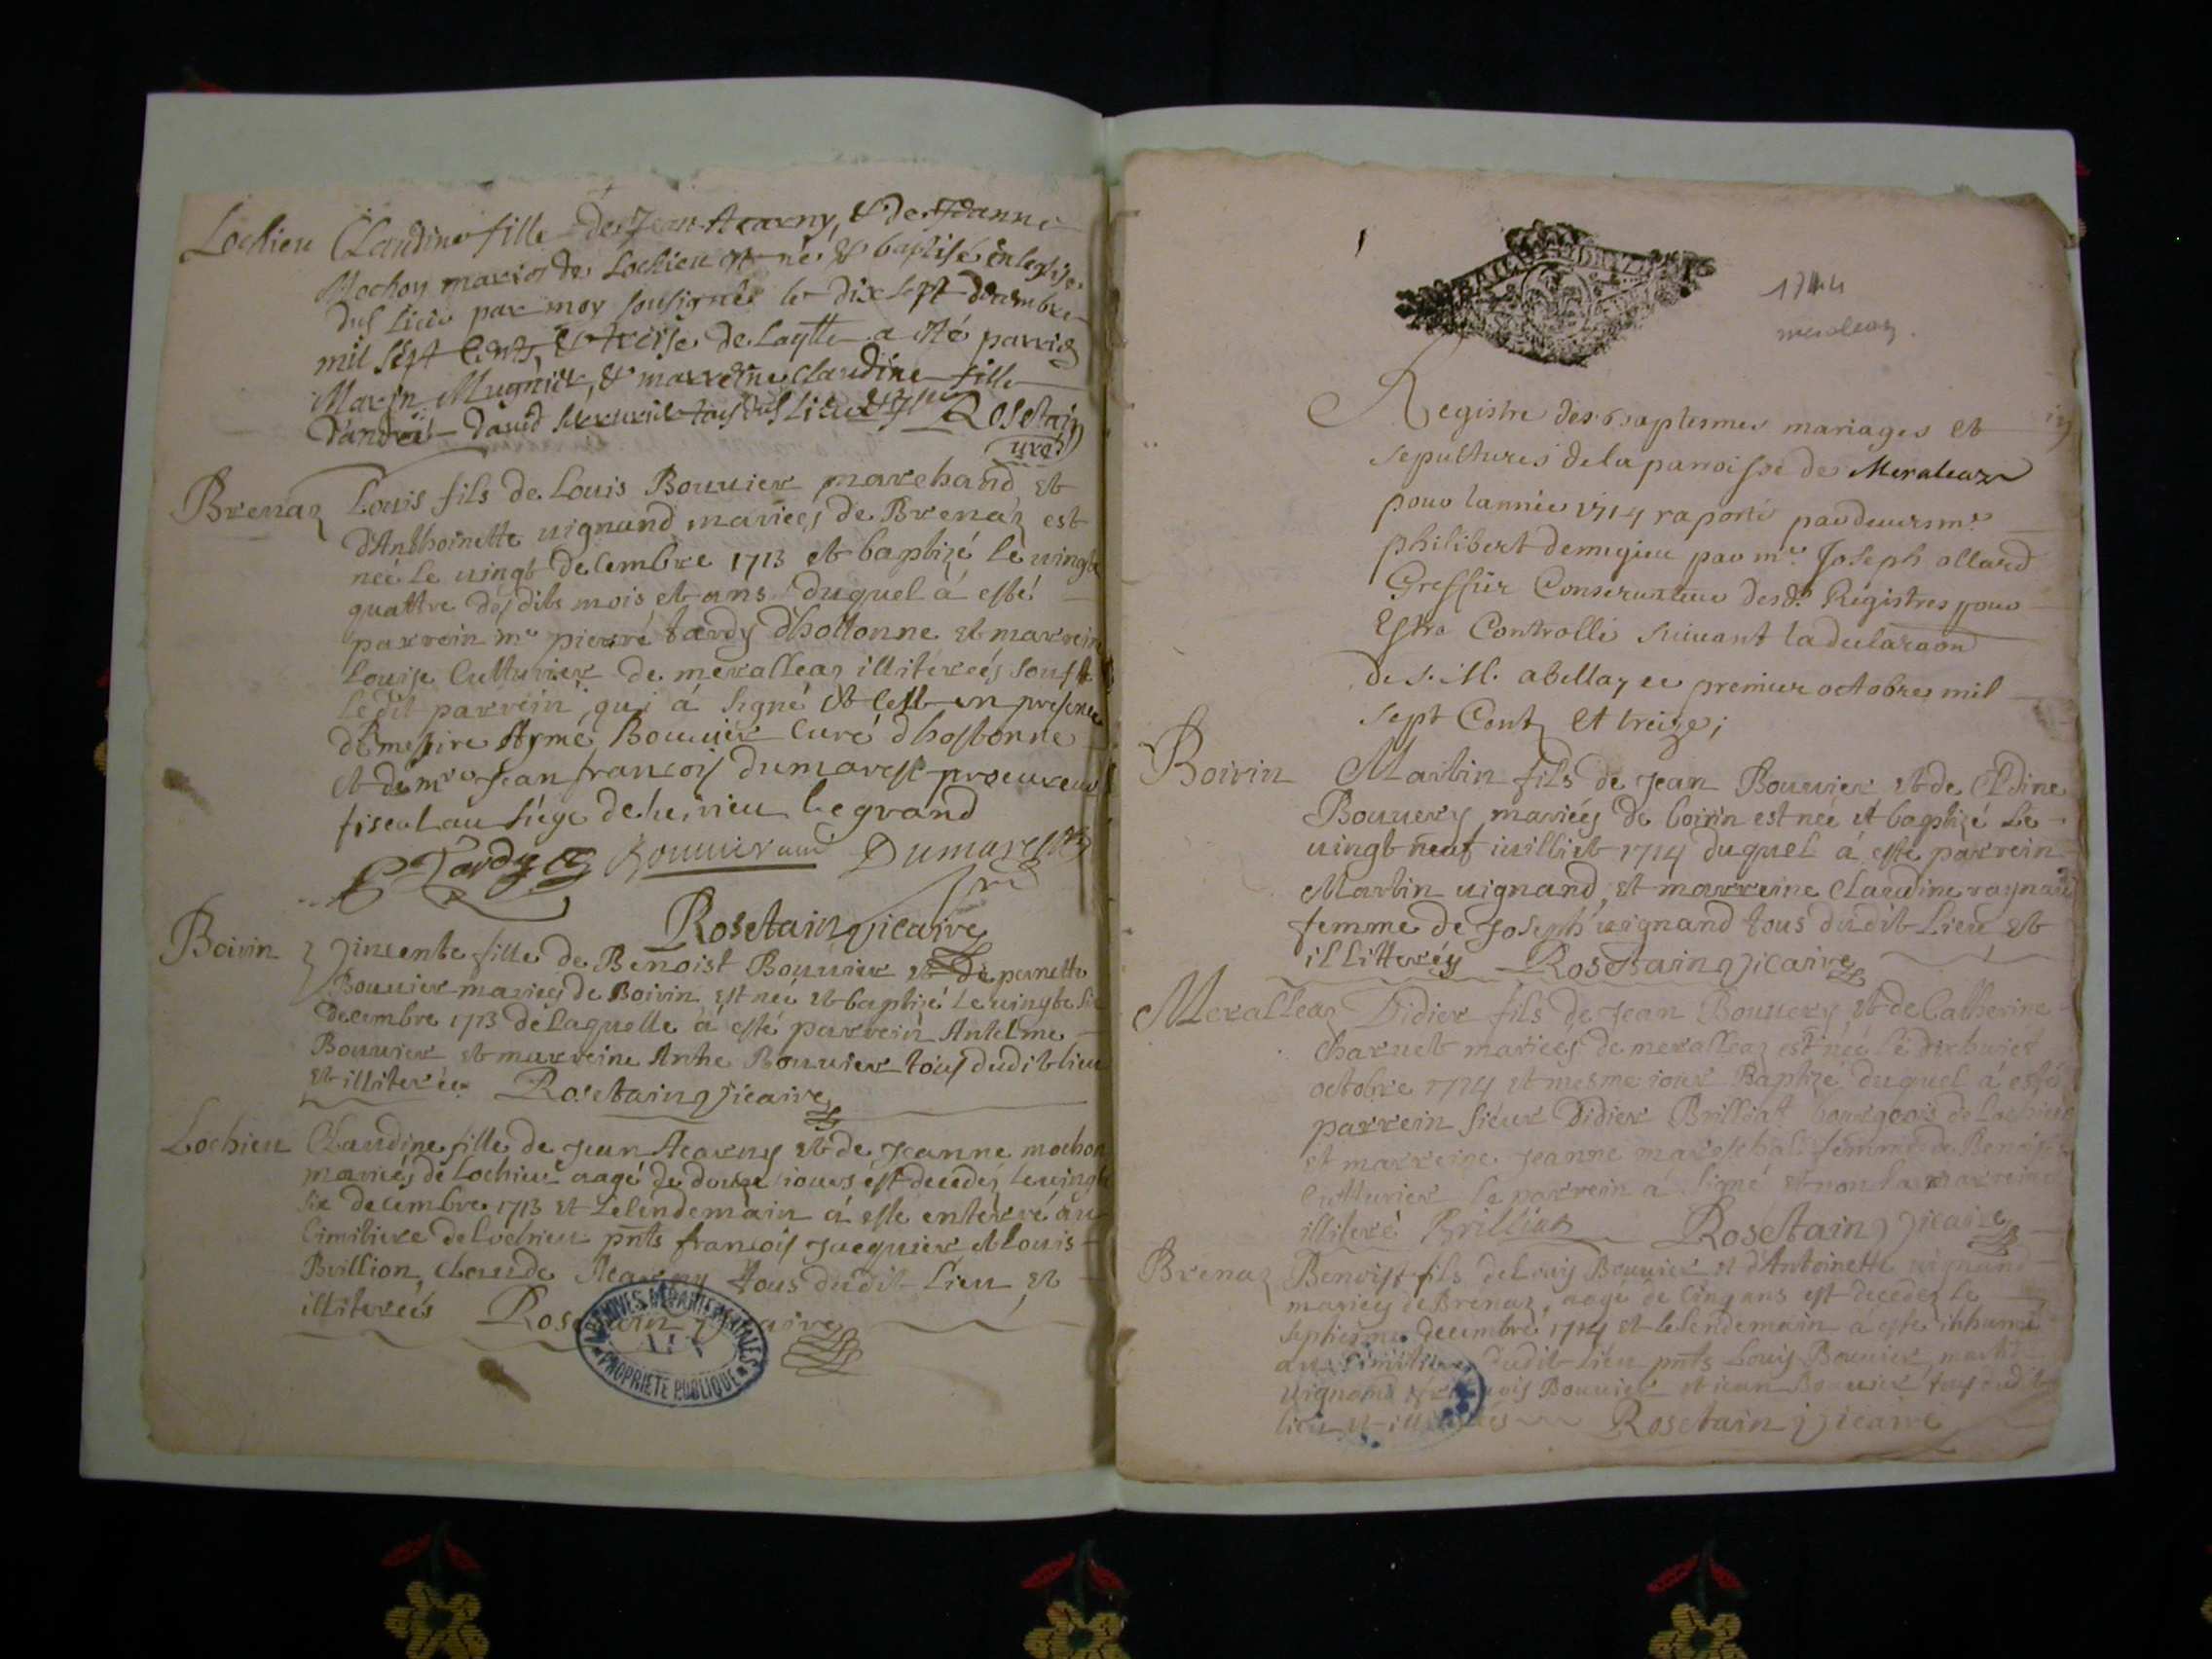 Lochieu Claudine fille de Jean Acarny, & de Jeanne
Mochon mariés de Lochieu est née & baptisé en leglise
dud lieu par moy sousigné le dix sept decembre
mil sept cents, & treise de laqlle a été parrin
Marin Mugnier, & marreine Claudine fille
d'andré david tous dud lieu Rosetain
curé
Brenaz Louis fils de Louis Bouuier marchand et
d'Anthoinette uignand mariees de Brenaz est
neé le uingt decembre 1713 et baptizé le uingt
quattre desdits mois et ans duquel à esté
parrein mr pierre tardy dhottonne et marrein
Louise Cutturier de meralleaz illitereés sauf
ledit parrein, qui à signé et cest en presence
de messire Aymé Bouuier Curé dhostonne
et de mre Jean francois dumarest procureur
fiscal au siége de uirieu le grand
P Tardy Bouuier curé Dumarest
Rosetain vicaire
Boirin Vincente fille de Benoist Bouuier et de pernette
Bouuier mariés de Boirin est née et baptizé le uingt six
decembre 1713 de laquelle à esté parrein Antelme
Bouuier et marreine Anthe Bouuier tous dudit lieu
et illiterée Rosetain vicaire
Lochieu Claudine fille de Jean Acarny et de Jeanne mochon
mariés de Lochieu aagé de douze iours est decedeé le uingt
six decembre 1713 et le lendemain à esté enterré au
Cimitiere de Lochieu pnts francois Juequier et Louis
Brillion, Claude Acarny tous dudit Lieu et
illitereés Rosetain vicaire
ARCHIVES DÉPARTEMENTALES
AIN
PROPRIÉTÉ PUBLIQUE
1
1714
meraleaz.
Registre des baptesmes mariages et
sepultures de la parroisse de Meraleaz
pour lannée 1714 raporté par deuers mr
philibert demigieu par mr Joseph ollard
Greffier Conseruateur desd. Registres pour
Estre Controllé suiuant la declaraon
de S. M. abellay ce premier octobre mil
sept Cent et treize;
Boirin Martin fils de Jean Bouuier et de Cldine
Bouuery mariés de boirin est neé et baptizé le
uingt neuf iuilliet 1714 duquel à esté parrein
Martin uignand, et marreine Claudine raynaud
femme de Joseph uignand tous dudit Lieu et
illitterés Rosetain vicaire
Meralleaz Didier fils de Jean Bouuery et de Catherine
Charuet mariees de merallez est neé le dixhuict
octobre 1714 et mesme iour Baptizé duquel à esté
parrein sieur Didier Brilliat bourgeois de Lochieu
et marreine Jeanne mareschal femme de Benoist
Cutturier le parrein à signé et non la marreine
illiteré Brilliat Rosetain vicaire
Brenaz Benoist fils de Louis Bouuier et d'Antoinette uignand
mariés de Brenaz, aagé de Cinq ans est decedez le
septiesme decembre 1714 et le lendemain à esté inhumé
au Cimitiere dudit Lieu pnts Louis Bouuier, martin
uignand Bouuier et iean Bouuier tous dudit
lieu et illiterés Rosetain vicaire